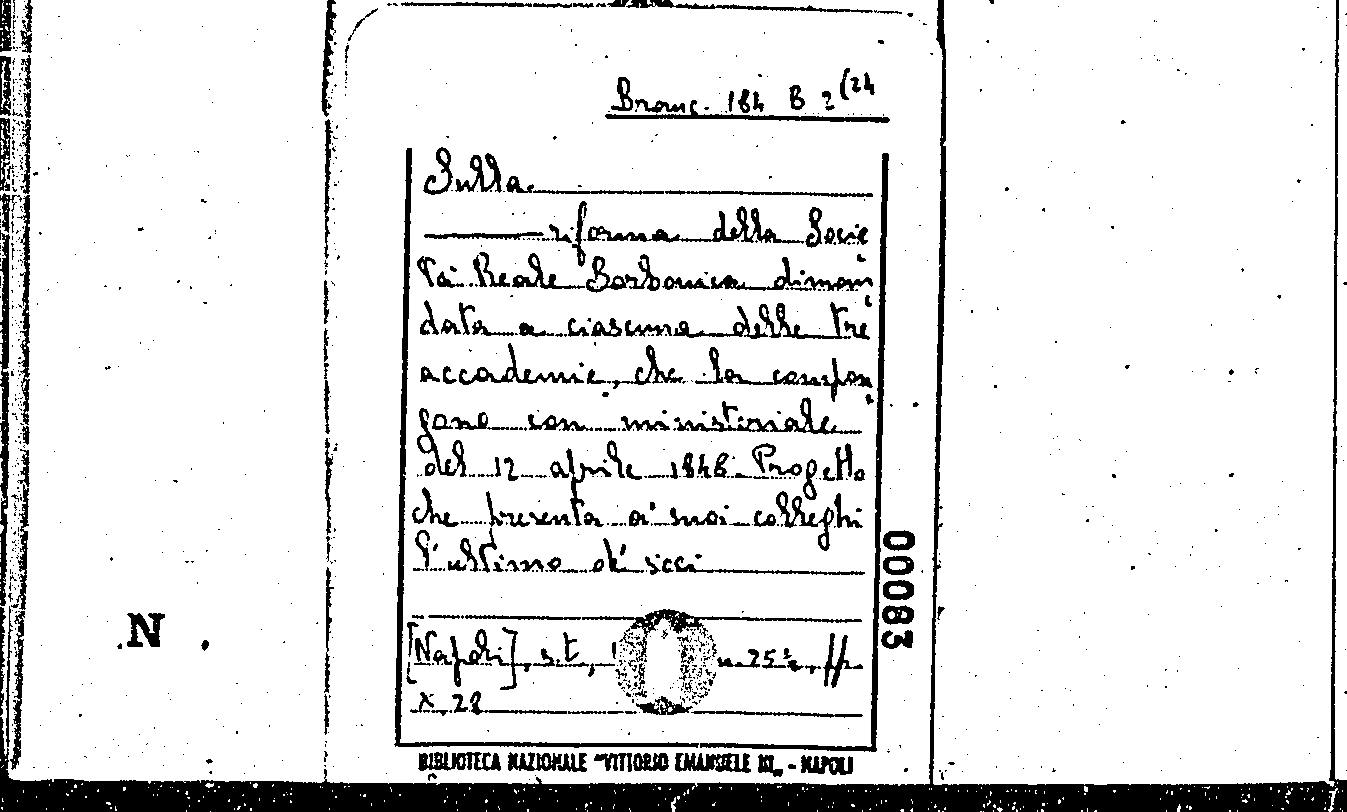 Branc. 184 B 2 (24
Sulla
riforma della Socie
tà Reale Borbonica diman
data a ciascuna delle tre
accademie, che la compon
gono con ministeriale
del 12 aprile 1848. Progetto
che presenta a' suoi colleghi
l'ultimo de' soci
[Napoli], s.t., 25 ½, pp.
X, 28
00083
N
BIBLIOTECA NAZIONALE "VITTORIO EMANUELE III" - NAPOLI